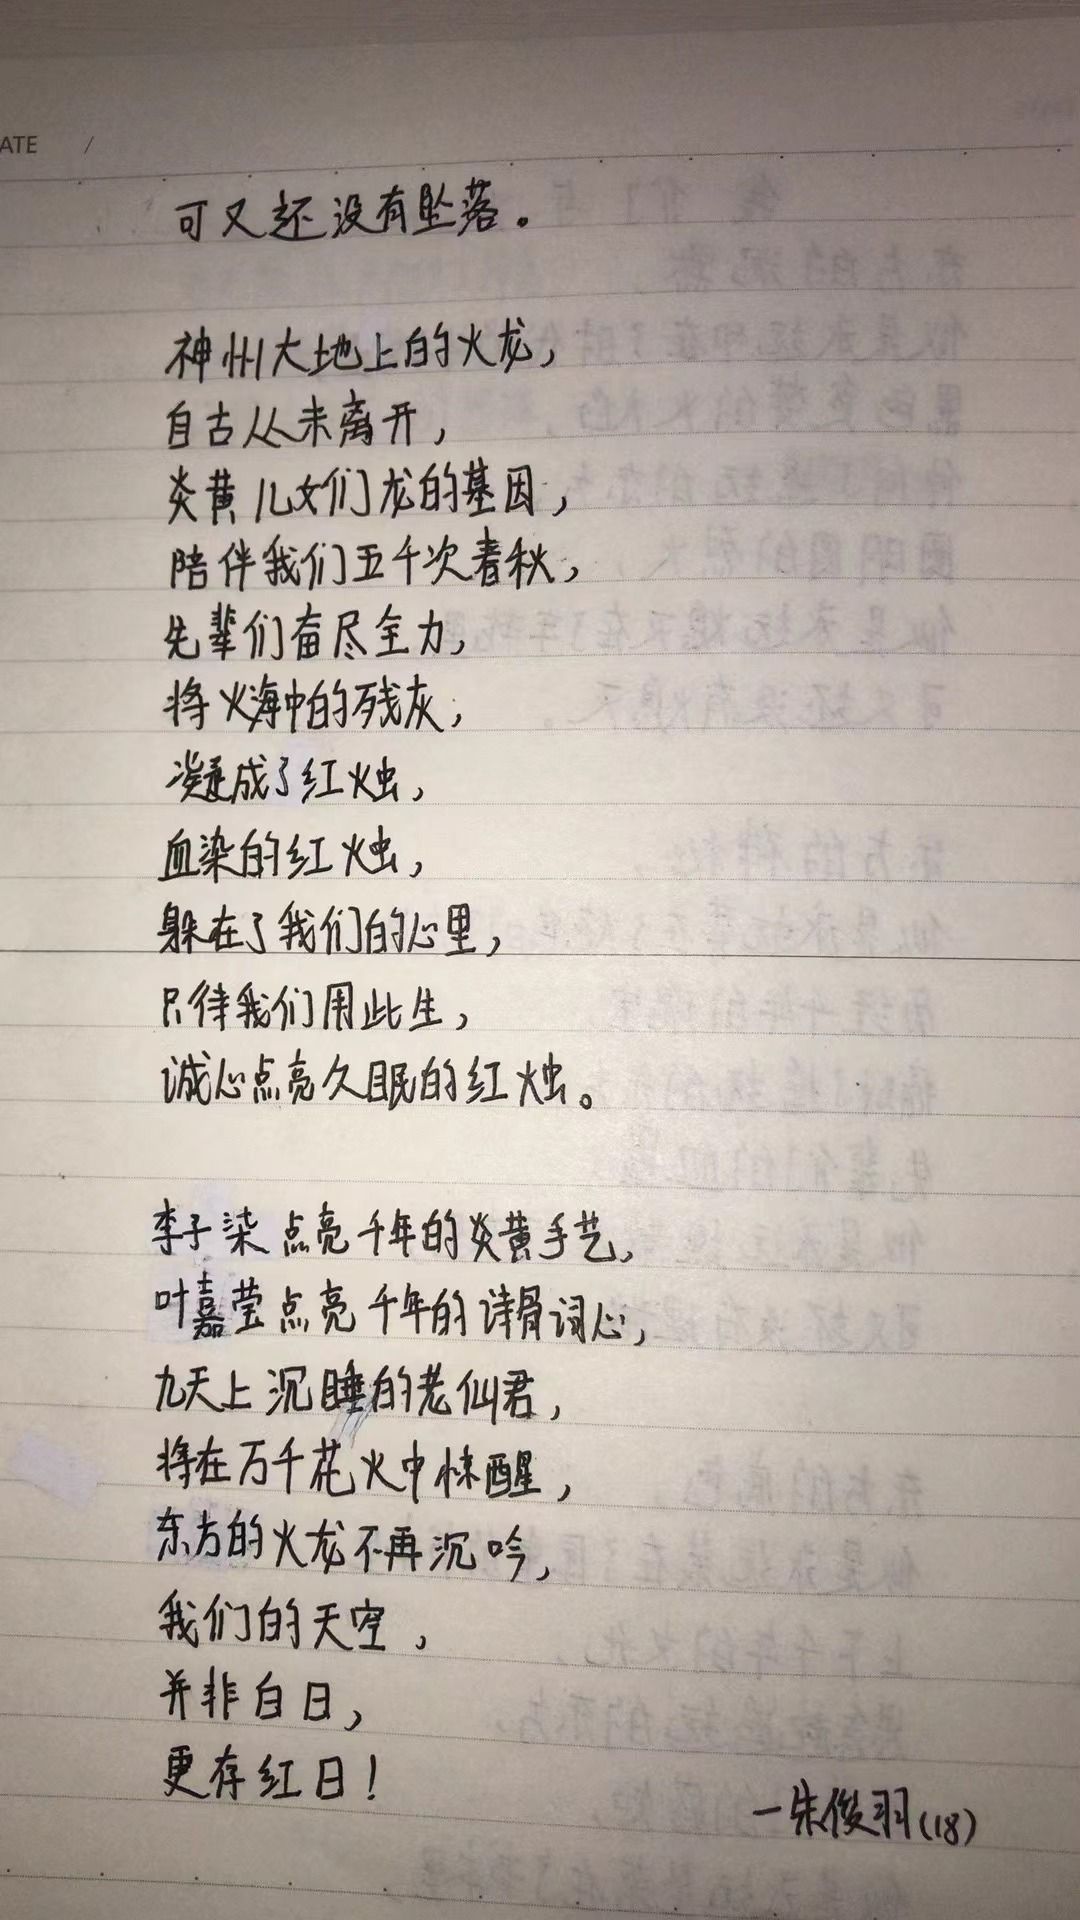 ATE /
可又还没有坠落。
神州大地上的火龙，
自古从未离开，
炎黄儿女们龙的基因，
陪伴我们五千次春秋，
先辈们奋尽全力，
将火海中的残灰，
凝成了红烛，
血染的红烛，
躲在了我们的心里，
只待我们用此生，
诚心点亮久眠的红烛。
李子柒点亮千年的炎黄手艺，
叶嘉莹点亮千年的诗骨词心，
九天上沉睡的老仙君，
将在万千花火中悚醒，
东方的火龙不再沉吟，
我们的天空，
并非白日，
更存红日！
—朱俊羽(18)